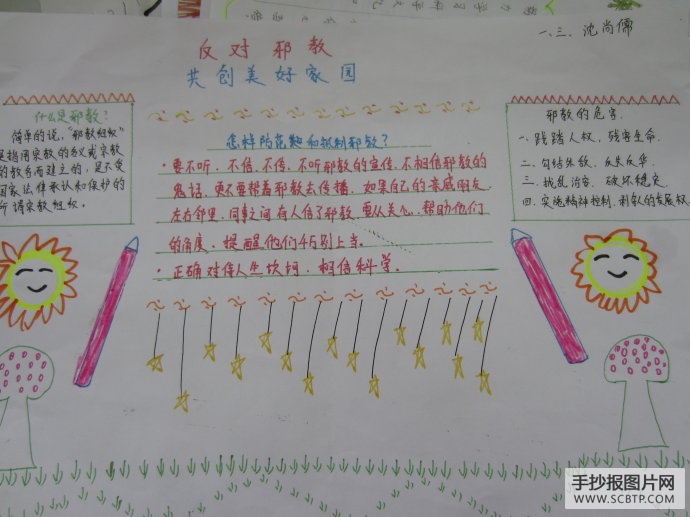 一.三. 沈尚儒
反对邪教
共创美好家园
什么是邪教?
简单的说,"邪教组织"
是指冒宗教的名义或宗教
的教名而建立的,是不受
国家法律承认和保护的
所谓宗教组织。
怎样防范和抵制邪教?
·要不听、不信、不传、不听邪教的宣传、不相信邪教的
鬼话、更不要帮着邪教去传播、如果自己的亲戚朋友、
左右邻里、同事之间有人信了邪教、要从关心、帮助他们
的角度、提醒他们别上当。
·正确对待人生坎坷、相信科学。
邪教的危害.
一、践踏人权、残害生命.
二、勾结外敌、
三、扰乱治安、破坏稳定.
四、实施精神控制、剥夺人的发展权.
手抄报图片网
WWW.SCBTP.COM